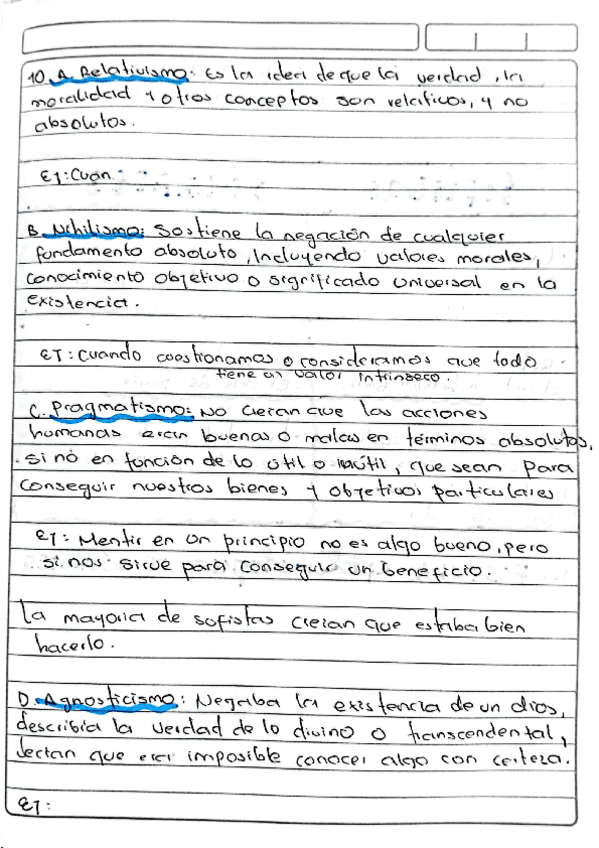 10. A. Relativismo: Es la idea de que la verdad, la
moralidad y otros conceptos son relativos, y no
absolutos.
EJ: Cuan
B. Nihilismo: Sostiene la negación de cualquier
fundamento absoluto, Incluyendo valores morales,
conocimiento objetivo o significado universal en la
existencia.
EJ: Cuando cuestionamos o consideramos que todo
tiene un valor intrínseco.
C. Pragmatismo: No creían que las acciones
humanas eran buenas o malas en términos absolutos,
si nó en función de lo útil o inútil, que sean para
conseguir nuestros bienes y objetivos particulares
EJ: Mentir en un principio no es algo bueno, pero
si nos sirve para conseguir un beneficio.
La mayoria de sofistas creían que estaba bien
hacerlo.
D. Agnosticismo: Negaba la existencia de un dios,
describía la verdad de lo divino o transcendental,
decían que era imposible conocer algo con certeza.
EJ: